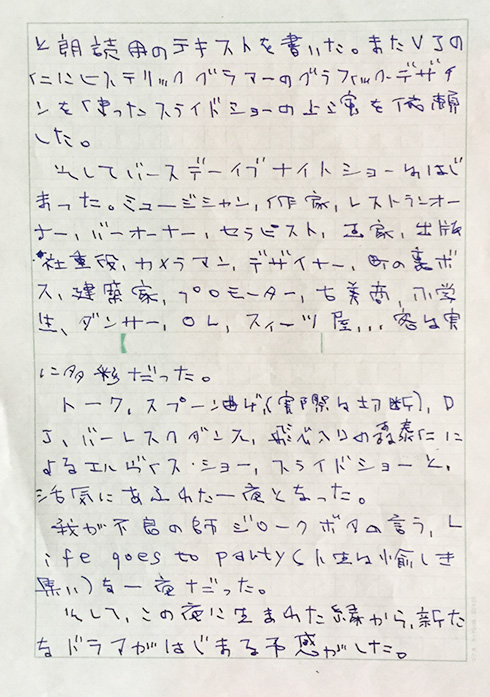 と朗読用のテキストを書いた。またVJの
仁にヒステリックグラマーのグラフィックデザイ
ンを使ったスライドショーの上演を依頼
した。
そしてバースデーイブナイトショーははじ
まった。ミュージシャン,作家,レストランオー
ナー,バーオーナー,セラピスト,画家,出版
社重役,カメラマン,デザイナー,町の裏ボ
ス,建築家,プロモーター,古美商,小学
生、ダンサー,OL,スィーツ屋,,,客は実
に多彩だった。
トーク,スプーン曲げ(実際は切断),D
J,バーレスクダンス,飛び入りの森泰仁に
よるエルヴィス・ショー,スライドショーと,
活気にあふれた一夜となった。
我が不良の師ジロークボタの言う,L
ife goes to party(人生は愉しき
集い)な一夜だった。
そして,この夜に生まれた縁から,新た
なドラマがはじまる予感がした。